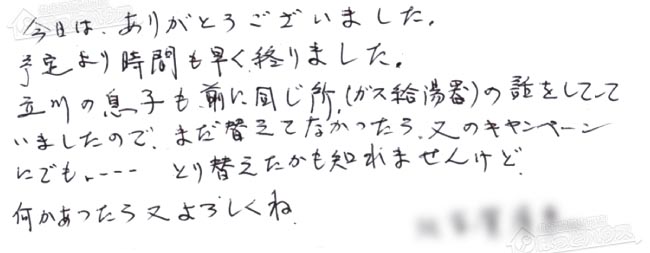 今日は、ありがとうございました。
予定より時間も早く終りました。
立川の息子も前に同じ所(ガス給湯器)の話をしてて
いましたので、まだ替えてなかったら、又のキャンペーン
にでも、---- とり替えたかも知れませんけど
何かあったら又よろしくね